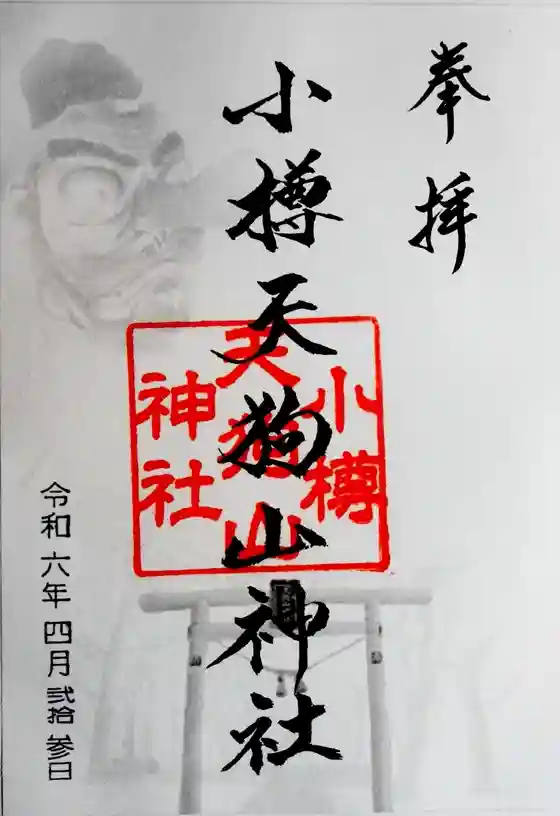 奉拝
小樽天狗山神社
小樽
天狗山
神社
令和六年四月弐拾参日